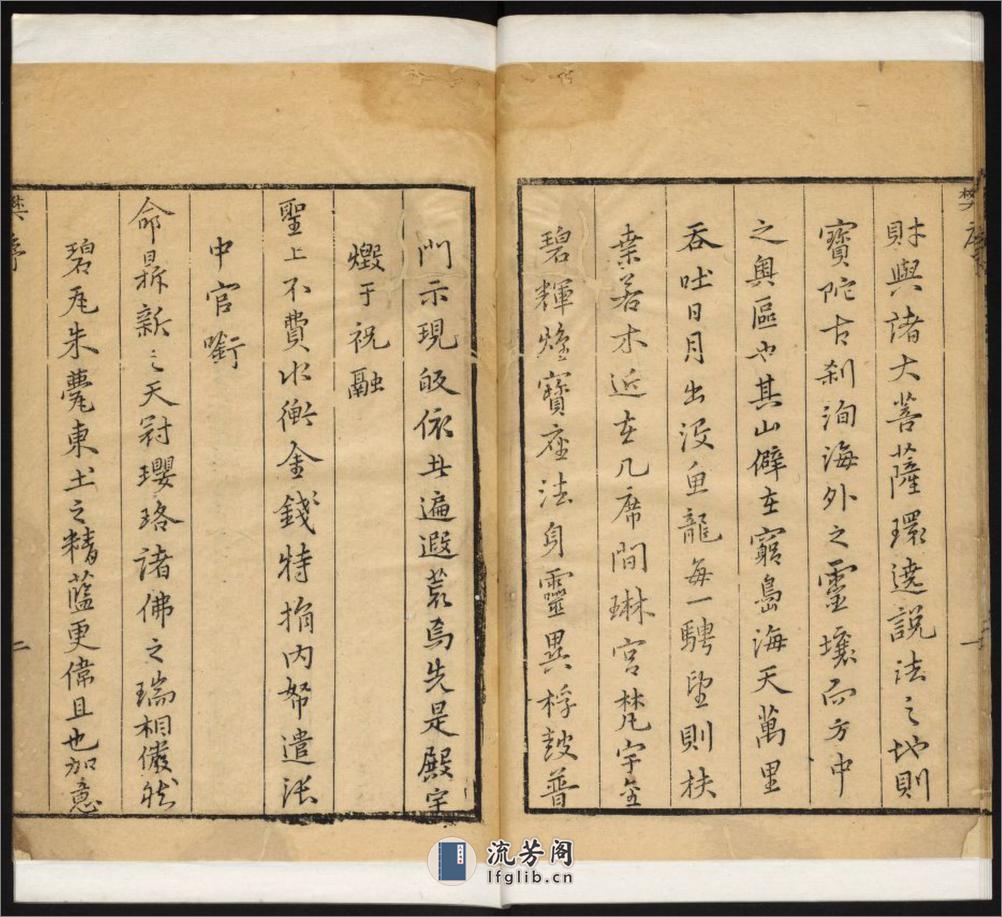 樊序
財與諸大菩薩環遶說法之地則
寶陀古刹洵海外之靈壤而方中
之奧區也其山僻在窮島海天萬里
吞吐日月出沒魚龍每一騁望則扶
桒若木近在几席間琳宮梵宇金
碧輝煌寶座法身靈異桴鼓普
門示現皈依者遍遐荒焉先是殿宇
燬于祝融
聖上不費水衡金錢特捐內帑遣張
中官銜
命鼎新之天冠瓔珞諸佛之瑞相儼然
碧瓦朱甍東土之精藍更偉且也加意
樊序
二
流芳阁
lfglib.cn